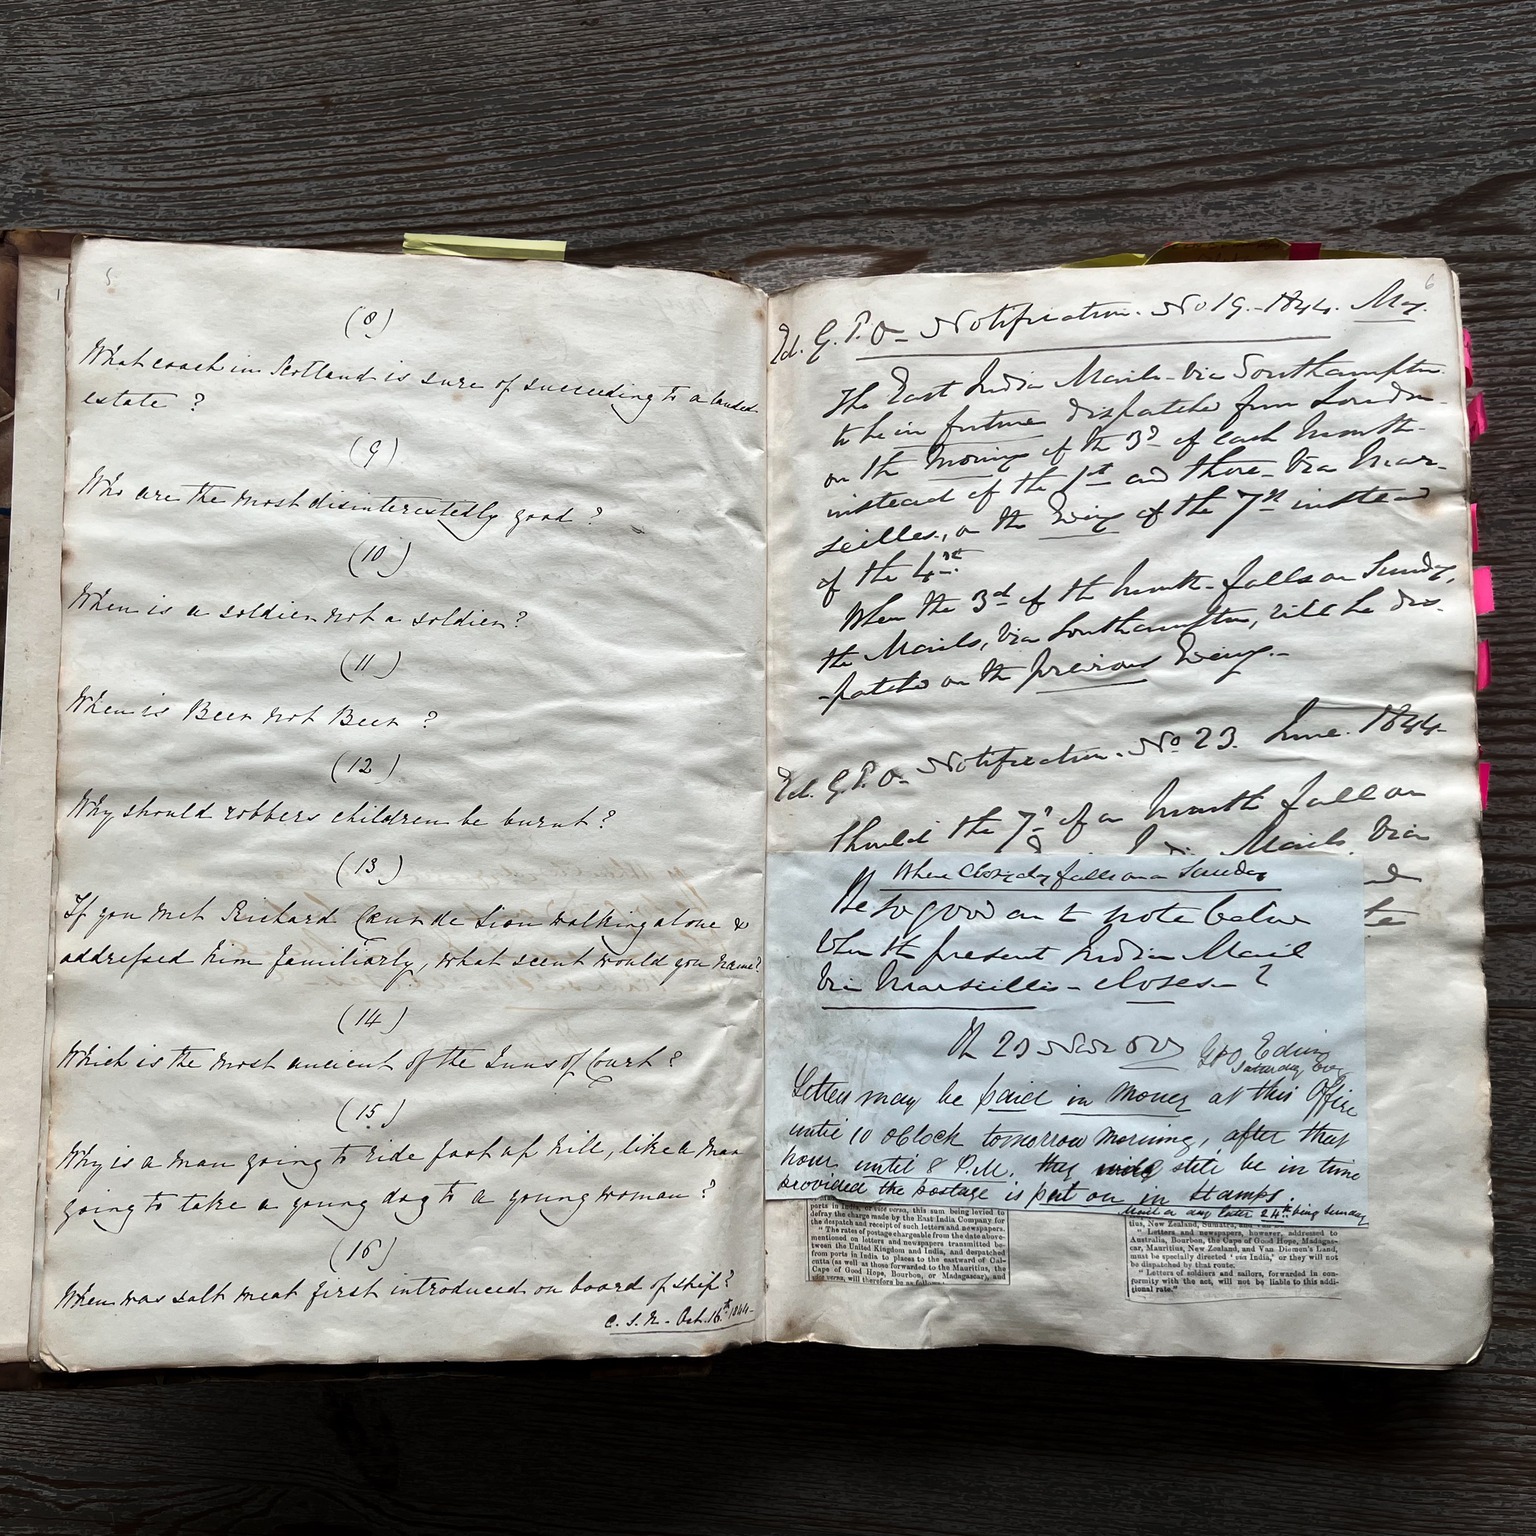 5
(8)
What coach in Scotland is sure of succeeding to a landed
estate ?
(9)
Who are the most disinterestedly good ?
(10)
When is a soldier not a soldier ?
(11)
When is Beer not Beer ?
(12)
Why should robbers children be burnt ?
(13)
If you met Richard Cœur de Lion walking alone &
addressed him familiarly, what scent would you name?
(14)
Which is the most ancient of the Inns of Court ?
(15)
Why is a man going to ride fast up hill, like a man
going to take a young dog to a young woman ?
(16)
When was salt meat first introduced on board of ship?
C. S. N. - Oct. 16th 1844-
6
Ed. G. P. O- Notification. No 19.-1844. May.
The East India Mails- via Southampton
to be in future dispatched from London
on the Morning of the 3d of each Month-
instead of the 1st and those- via Mar-
seilles, on the Evening of the 7th instead
of the 4th
When the 3d of the Month- falls on Sunday,
the Mails, via Southampton, will be dis-
-patched on the previous Evening.-
Ed. G. P. O- Notification. No 23. June. 1844-
Should the 7th of a Month fall on
Mails via
When closing day falls on a Sunday
Be so good as to note below
when the present India Mail
via Marseilles- closes- ?
GPO Edin
Saturday Eveg
Letters may be paid in money at this Office
until 10 oClock tomorrow morning, after that
hour until 8 P.M. they will still be in time
provided the postage is put on in Stamps.
24th being Sunday
ports in India, or vice versa, this sum being levied to
defray the charge made by the East India Company for
the despatch and receipt of such letters and newspapers.
"The rates of postage chargeable from the date above-
mentioned on letters and newspapers transmitted be-
tween the United Kingdom and India, and despatched
from ports in India to places to the eastward of Cal-
cutta (as well as those forwarded to the Mauritius, the
Cape of Good Hope, Bourbon, or Madagascar), and
vice versa, will therefore be as follows
tius, New Zealand, Sumatra, and
"Letters and newspapers, however, addressed to
Australia, Bourbon, the Cape of Good Hope, Madagas-
car, Mauritius, New Zealand, and Van Diemen's Land,
must be specially directed 'via India,' or they will not
be dispatched by that route.
"Letters of soldiers and sailors, forwarded in con-
formity with the act, will not be liable to this addi-
tional rate."